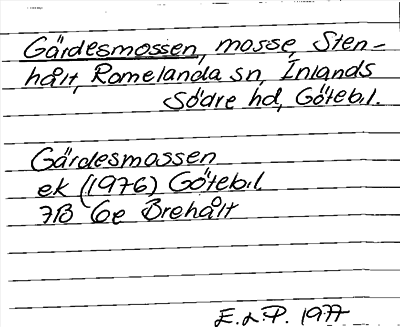 Gärdesmossen, mosse, Sten-
hålt, Romelanda sn, Inlands
Södre hd, Götebil.
Gärdesmossen
ek (1976) Götebil.
7B 6e Brehålt
E.d.P. 1977